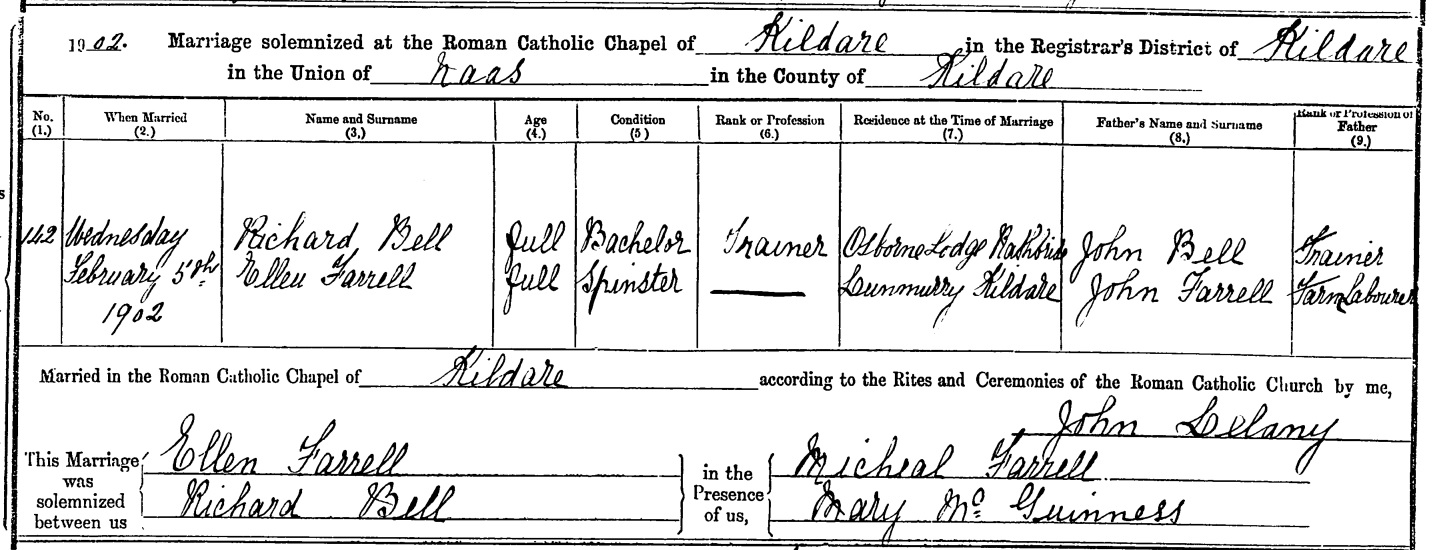 1902. Marriage solemnized at the Roman Catholic Chapel of Kildare in the Registrar's District of Kildare
in the Union of Naas in the County of Kildare
No. (1.) When Married (2.) Name and Surname (3.) Age (4.) Condition (5) Rank or Profession (6.) Residence at the Time of Marriage (7.) Father's Name and Surname (8.) Rank or Profession of Father (9.)
142 Wednesday Richard Bell full Bachelor Trainer Osborne Lodge Rathbride John Bell Trainer
February 5th Ellen Farrell full Spinster Dunmurry Kildare John Farrell Farm Labourer
1902
Married in the Roman Catholic Chapel of Kildare according to the Rites and Ceremonies of the Roman Catholic Church by me,
John Delany
This Marriage was solemnized between us
Ellen Farrell
Richard Bell
in the Presence of us,
Micheal Farrell
Mary Mc Guinness